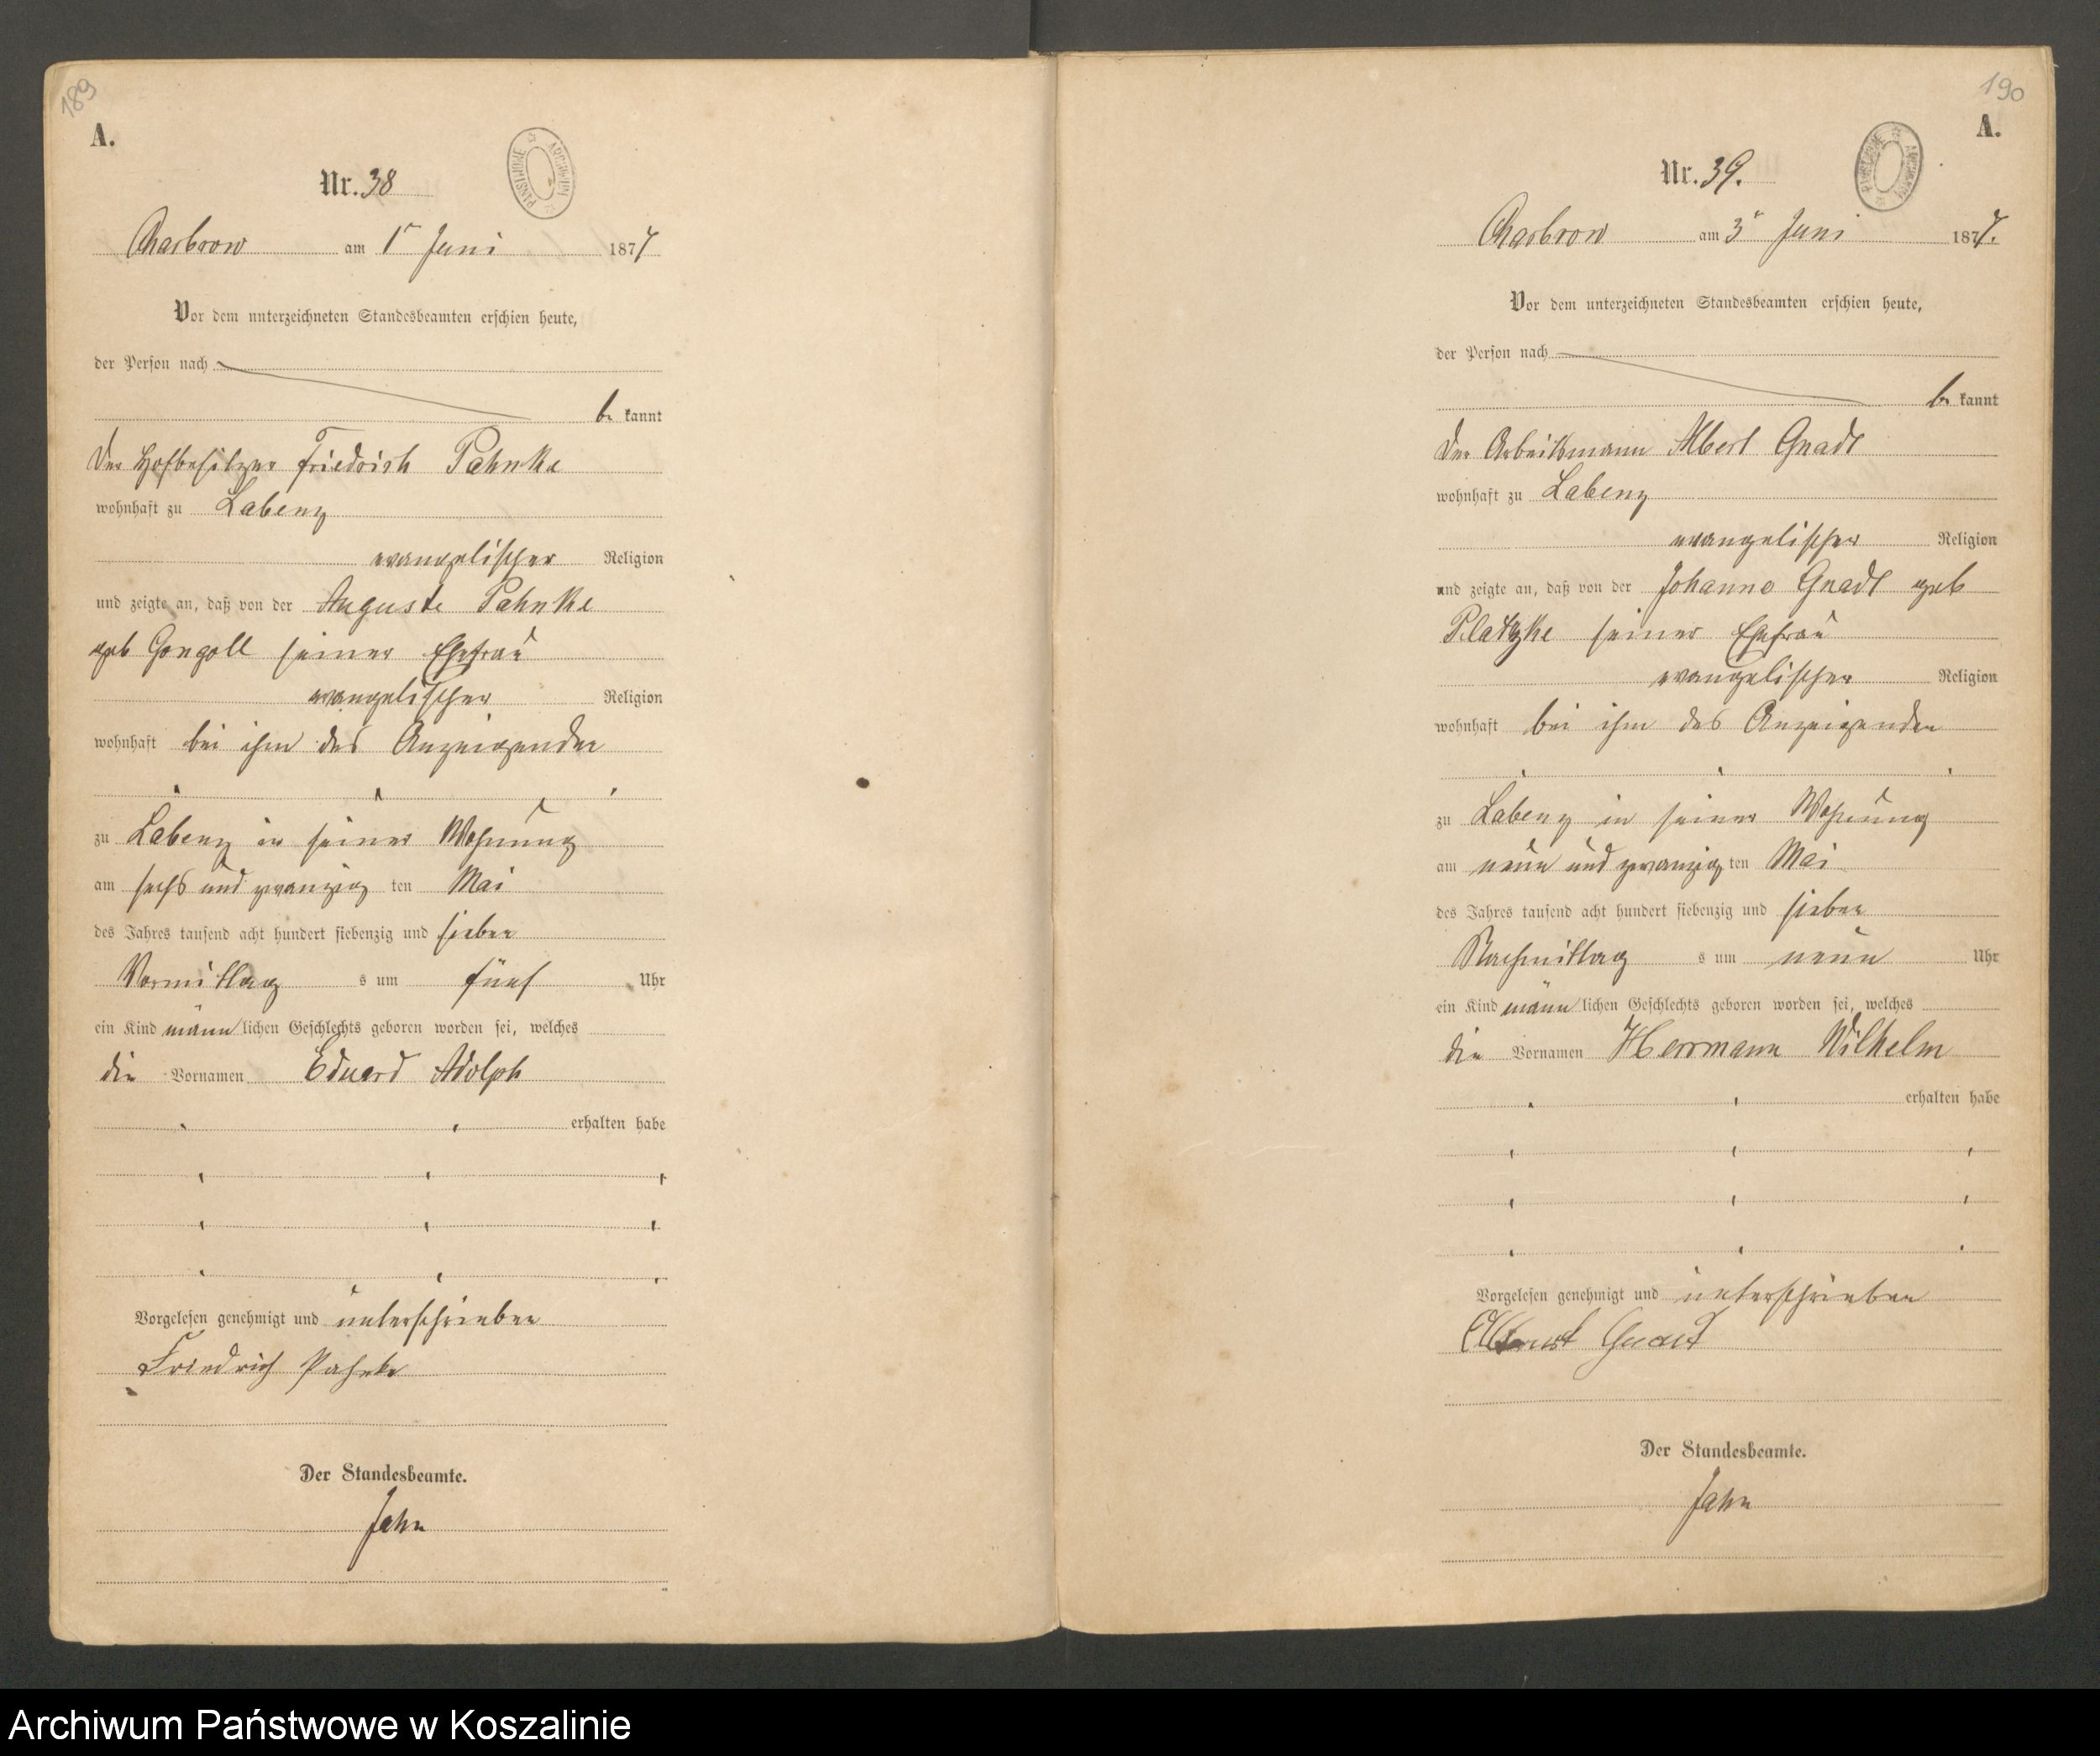 189
A.
Nr. 38
PAŃSTWOWE ARCHIWUM
Charbrow am 1t Juni 1877
Vor dem unterzeichneten Standesbeamten erschien heute,
der Person nach
be kannt
Der Hofbesitzer Friedrich Pahnke
wohnhaft zu Labenz
evangelischer Religion
und zeigte an, daß von der Auguste Pahnke
geb Gongoll seiner Ehefrau
evangelischer Religion
wohnhaft bei ihm des Anzeigenden
zu Labenz in seiner Wohnung
am sechs und zwanzig ten Mai
des Jahres tausend acht hundert siebenzig und sieben
Vormittag s um fünf Uhr
ein Kind männ lichen Geschlechts geboren worden sei, welches
die Vornamen Eduard Adolph
erhalten habe
Vorgelesen genehmigt und unterschrieben
Friedrich Pahnke
Der Standesbeamte.
Jahn
190
A.
Nr. 39.
PAŃSTWOWE ARCHIWUM
Charbrow am 3t Juni 1877.
Vor dem unterzeichneten Standesbeamten erschien heute,
der Person nach
be kannt
Der Arbeitsmann Albert Gnadt
wohnhaft zu Labenz
evangelischer Religion
und zeigte an, daß von der Johanne Gnadt geb
Platzke seiner Ehefrau
evangelischer Religion
wohnhaft bei ihm des Anzeigenden
zu Labenz in seiner Wohnung
am neun und zwanzig ten Mai
des Jahres tausend acht hundert siebenzig und sieben
Nachmittag s um neun Uhr
ein Kind männ lichen Geschlechts geboren worden sei, welches
die Vornamen Herrmann Wilhelm
erhalten habe
Vorgelesen genehmigt und unterschrieben
Gnadt
Der Standesbeamte.
Jahn
Archiwum Państwowe w Koszalinie